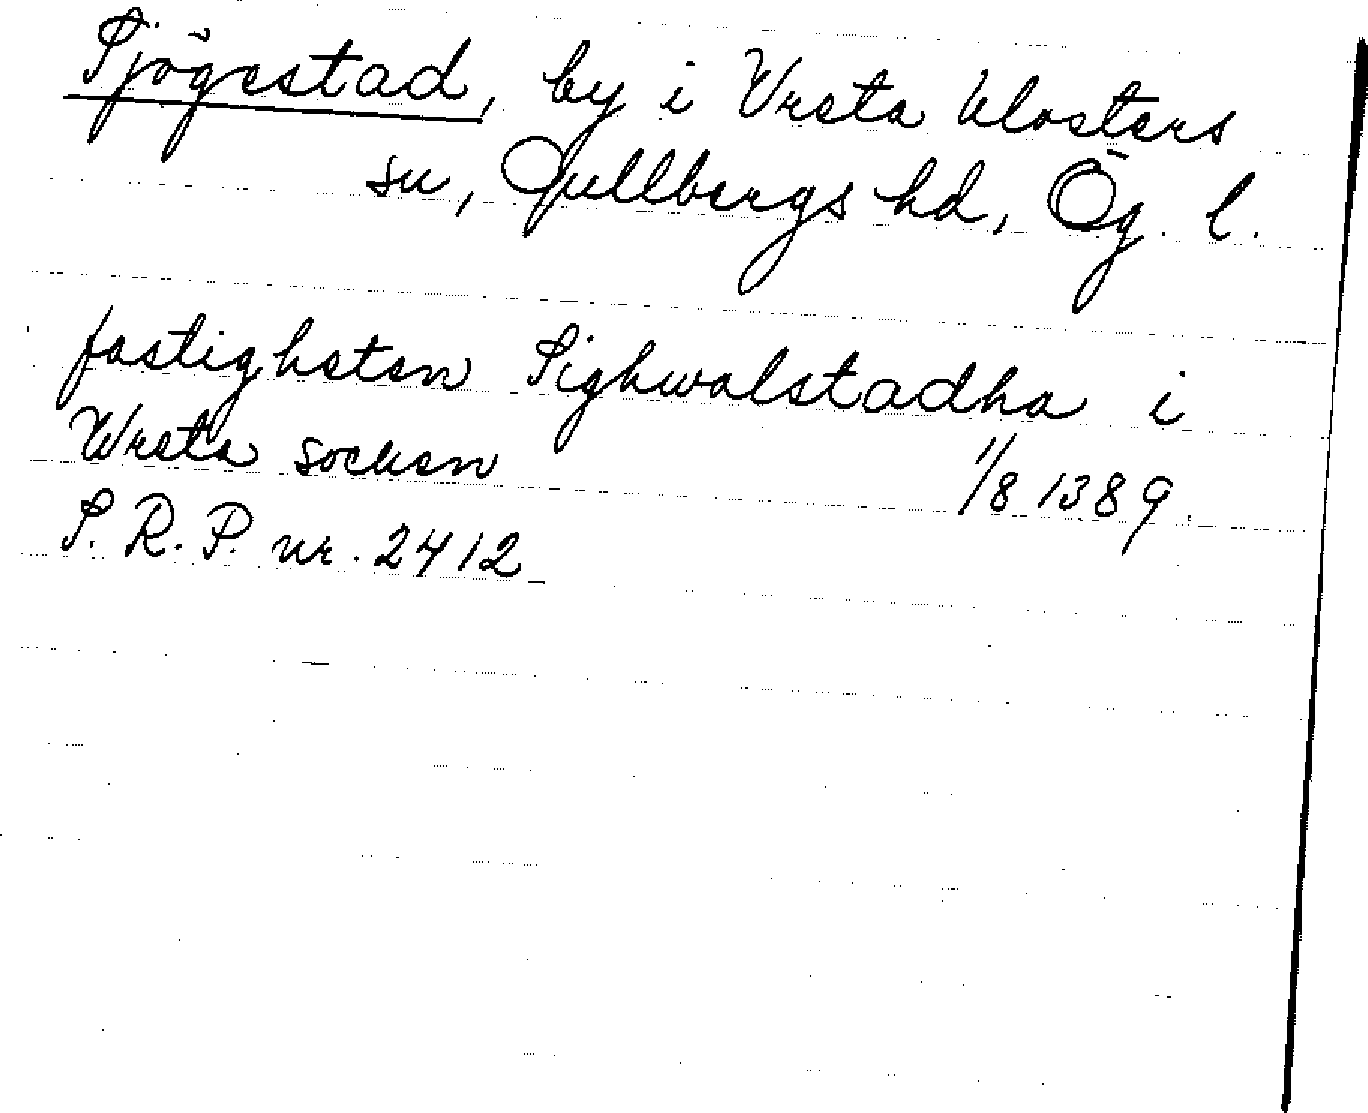 Sjögestad, by i Vreta klosters
sn, Gullbergs hd, Ög. l.
fastigheten Sighwalstadha i
Wreta socken 11/8 1389.
S. R. P. nr. 2412